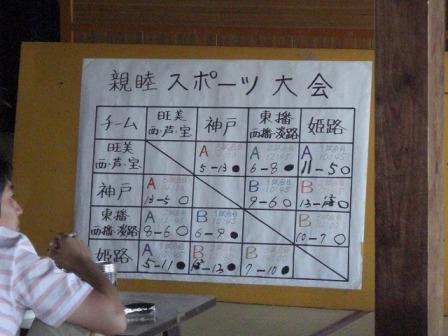 親睦 スポーツ 大会
チーム 旺美 西・芦・宝 神戸 東播 西播・淡路 姫路
旺美 西・芦・宝 A 5-13● A 6-8● A 11-5○
神戸 A 13-5○ B 9-6○ B 13-
東播 西播・淡路 A 8-6○ B 6-9● B 10-7○
姫路 A 5-11● B -13● B 7-10●